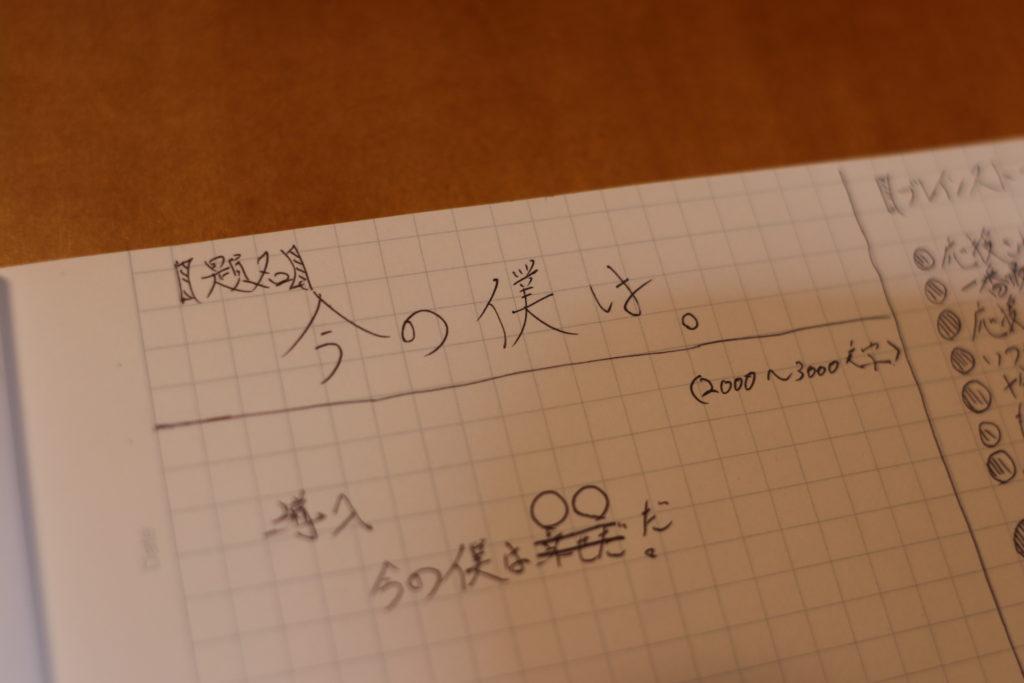 【題名】
今の僕は。
(2000〜3000文字)
導入
今の僕は幸せだ ○○だ。
【ブレインスト
応援
一番
応援